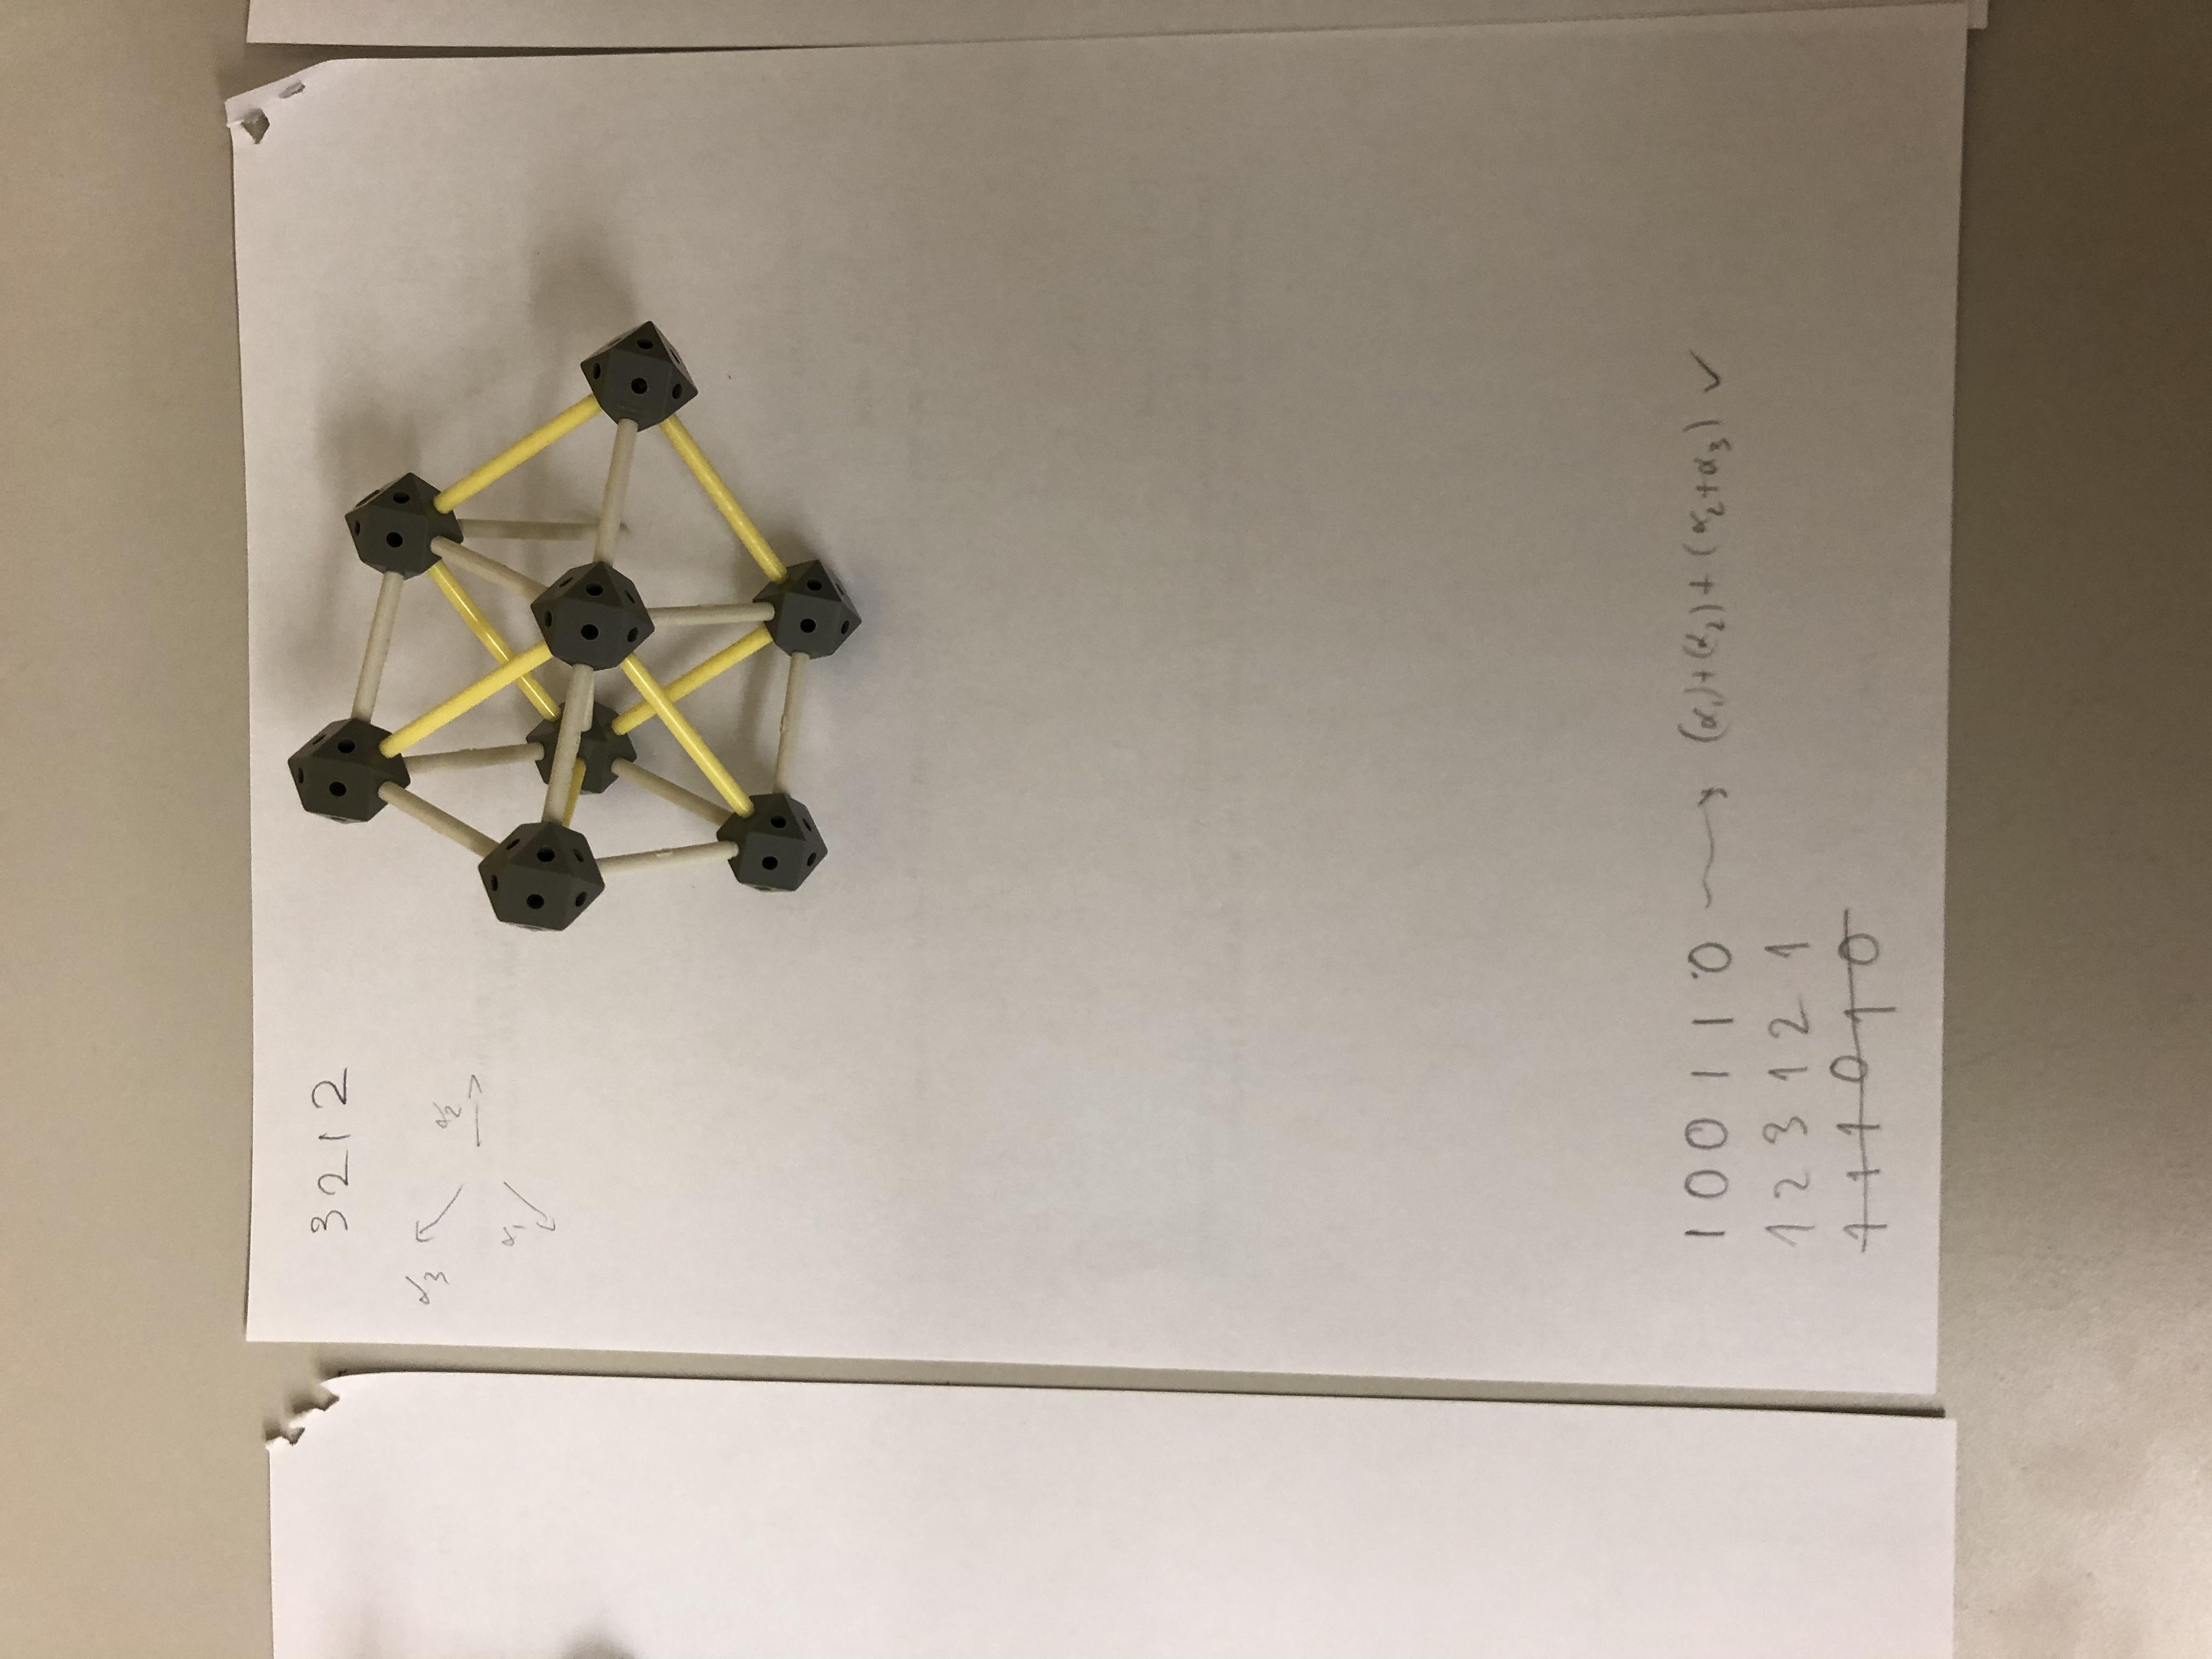 3212
α₃
α₂
α₁
100110 → (α₁)+(α₂)+(α₂+α₃) ✓
123121
111010